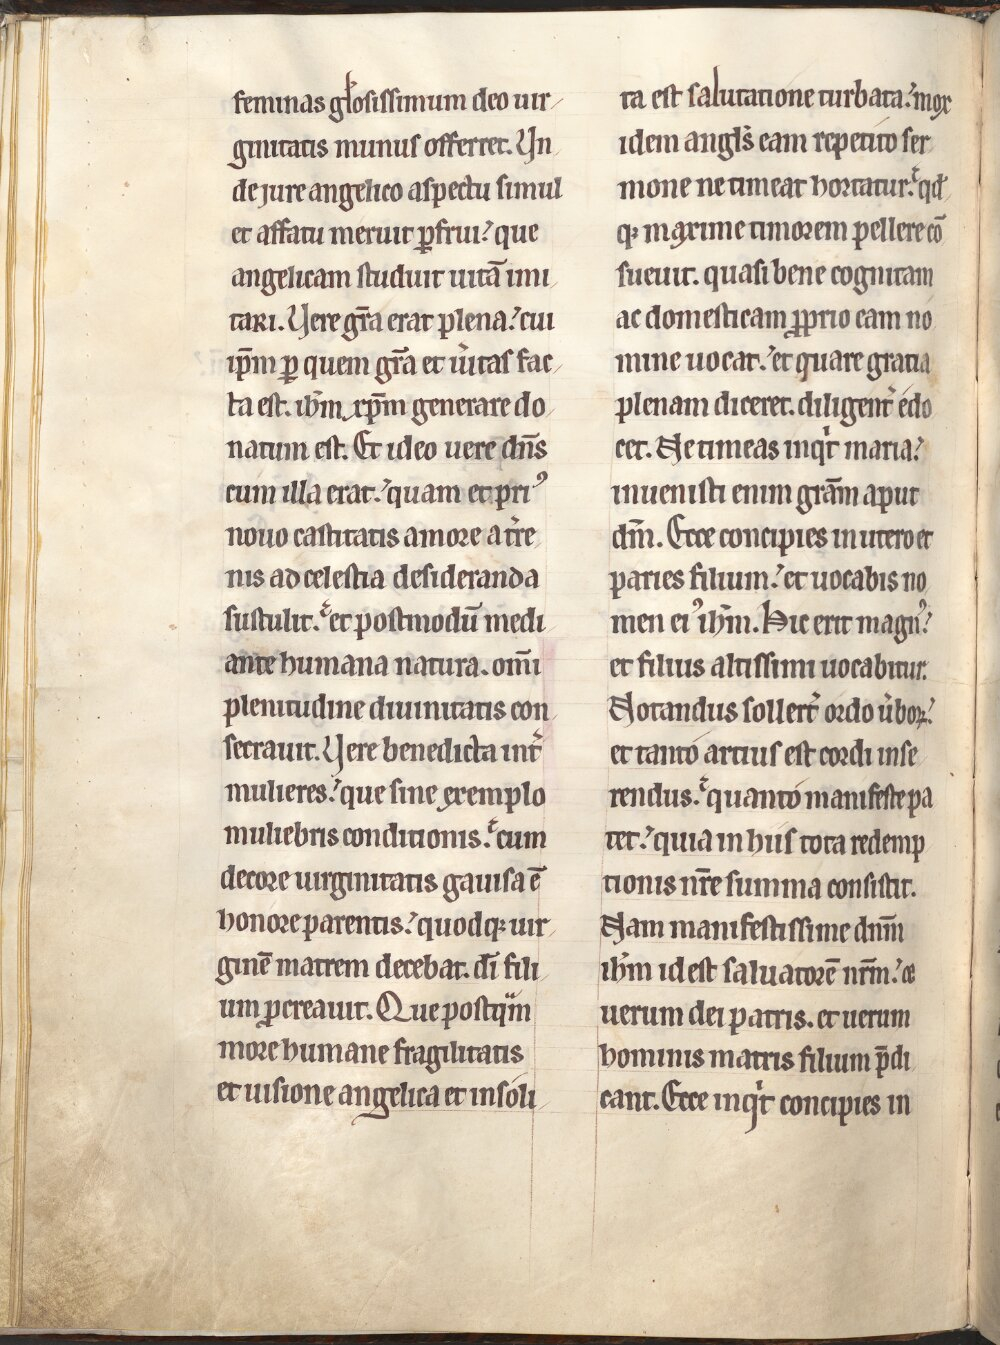 feminas glosissimum deo uir
ginitatis munus offerret. Un
de jure angelico aspectu simul
et affatu meruit ꝑfrui? que
angelicam studuit uitā imi
tari. Uere gr̄a erat plena? cui
ip̄m ꝑ quem gr̄a et uitas fac
ta est. ih̄m xp̄m generare do
natum est. Et ideo uere dn̄s
cum illa erat? quam et priꝰ
nouo castitatis amore a tr̄re
nis ad celestia desideranda
sustulit. et postmodū medi
ante humana natura. om̄i
plenitudine diuinitatis con
secrauit. Uere benedicta int̄
mulieres? que sine exemplo
muliebris conditionis. cum
decore uirginitatis gauisa ē
honore parentis? quodqꝫ uir
ginē matrem decebat. dī fili
um ꝓcreauit. Que postqͣm
more humane fragilitatis
et uisione angelica et insoli
ta est salutatione turbata? mox
idem angls̄ eam repetito ser
mone ne timeat hortatur. qd̄
qꝫ maxime timorem pellere cō
sueuit. quasi bene cognitam
ac domesticam ꝓprio eam no
mine uocat? et quare gratia
plenam diceret. diligent̄ edo
cet. Ne timeas inqͥt maria?
inuenisti enim grām aput
dm̄. Ecce concipies in utero et
paries filium? et uocabis no
men eiꝰ ih̄m. Hic erit magnꝰ?
et filius altissimi uocabitur.
Notandus sollert̄ ordo ūboꝝ?
et tanto artius est cordi inse
rendus. quanto manifeste pa
tet? quia in hiis tota redemp
tionis nr̄e summa consistit.
Nam manifestissime dn̄m
ih̄m id est saluatorē nr̄m? et
uerum dei patris. et uerum
hominis matris filium p̄di
cant. Ecce inqͥt concipies in